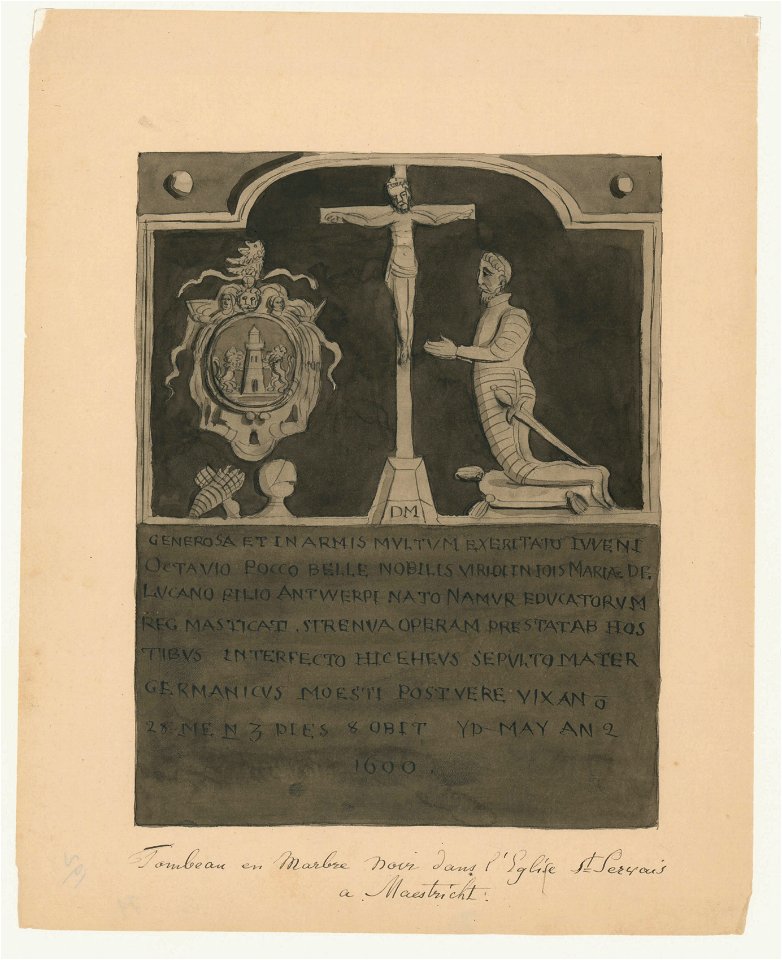 DM
GENEROSA ET IN ARMIS MVLTVM EXERCITATO IVVENI
OCTAVIO POCCO BELLE NOBILIS VIRIDI INIOIS MARIÆ DE
LVCANO FILIO ANTWERPI NATO NAMVR EDVCATORVM
REG MASTICATI . STRENVA OPERAM PRESTATAB HOS
TIBVS INTERFECTO HIC EHEVS SEPVLTO MATER
GERMANICVS MOESTI POSTVERE VIX AN O
28 ME N 3 DIES 8 OBIT YD MAY AN 2
1600.
Tombeau en Marbre noir dans l'Eglise St Servais
a Maestricht.